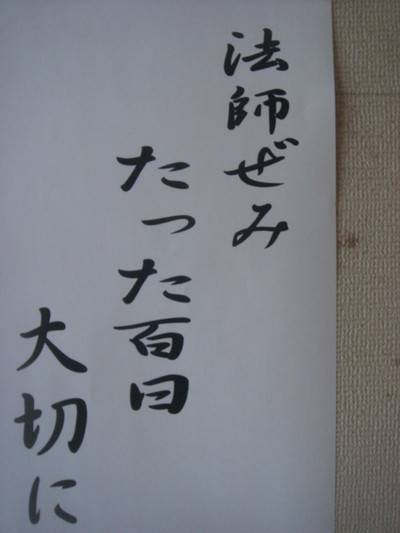 法師ぜみ
たった百日
大切に